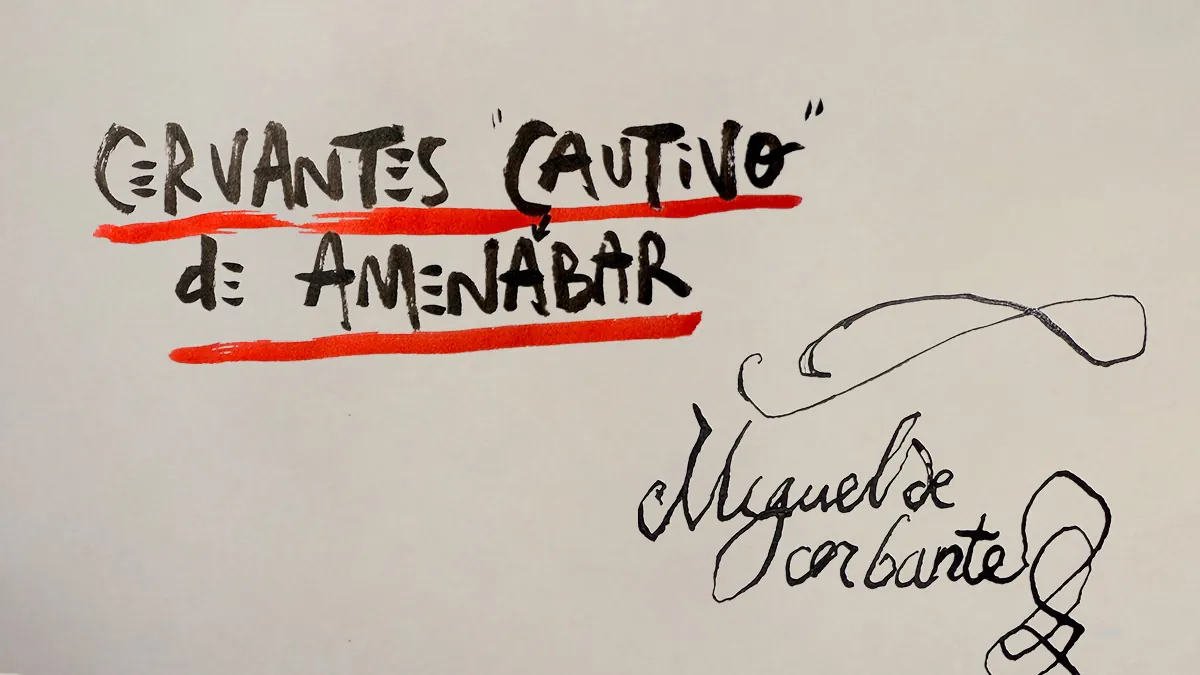 CERVANTES "CAUTiVO"
dE AMENÁBAR
Miguel de
cerbante